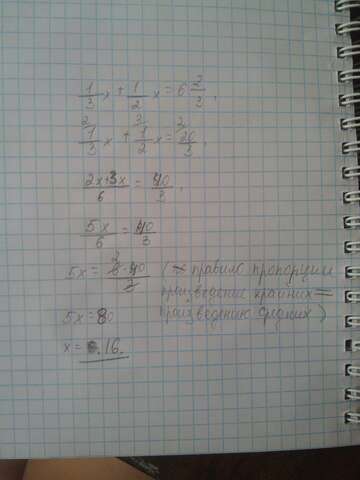 1/3 x + 1/2 x = 6 2/3,
2 1/3 x + 3 1/2 x = 2 20/3,
2x+3x/6 = 40/3,
5x/6 = 40/3
5x = 2 6·40/3 (правило пропорции
произведение крайних =
5x = 80 произведению средних)
x = 16.